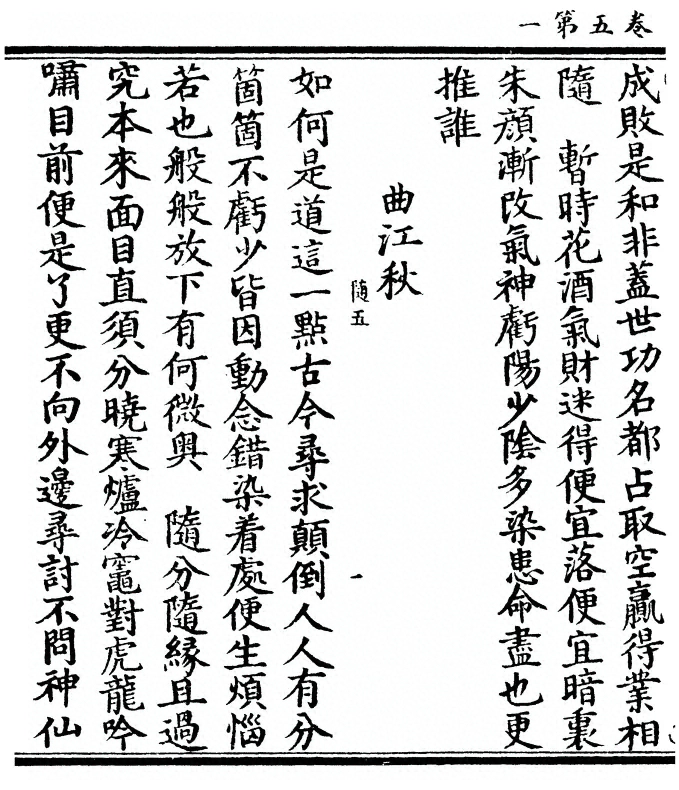 卷五第一
成敗是和非蓋世功名都占取空贏得業相
隨　暫時花酒氣財迷得便宜落便宜暗裏
朱顔漸改氣神虧陽少陰多染患命盡也更
推誰
曲江秋
隨五　一
如何是道這一點古今尋求顛倒人人有分
箇箇不虧少皆因動念錯染着處便生煩惱
若也般般放下有何微奥　隨分隨縁且過
究本來面目直須分曉寒爐冷竈對虎龍吟
嘯目前便是了更不向外邊尋討不問神仙